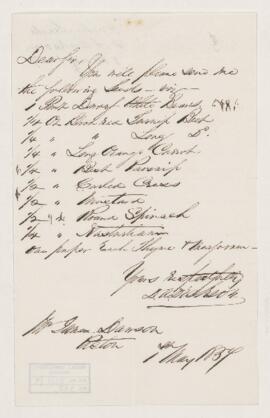 Dear Sir,
You will please send me
the following Seeds – viz –
1 Pint Dwarf White Beans
1/4 Oz Blood red Turnip Beet
1/4 " " Long Do
1/4 " Long Orange Carrot
1/4 " Best Parsnip
1/2 " Curled Cress
1/2 " Mustard
1/2 " Round Spinach
1/4 " Nasturtium
one paper Each Thyme & Marjoram –
Yours Respectfully
Mr Dawson
Picton
1st May 1854